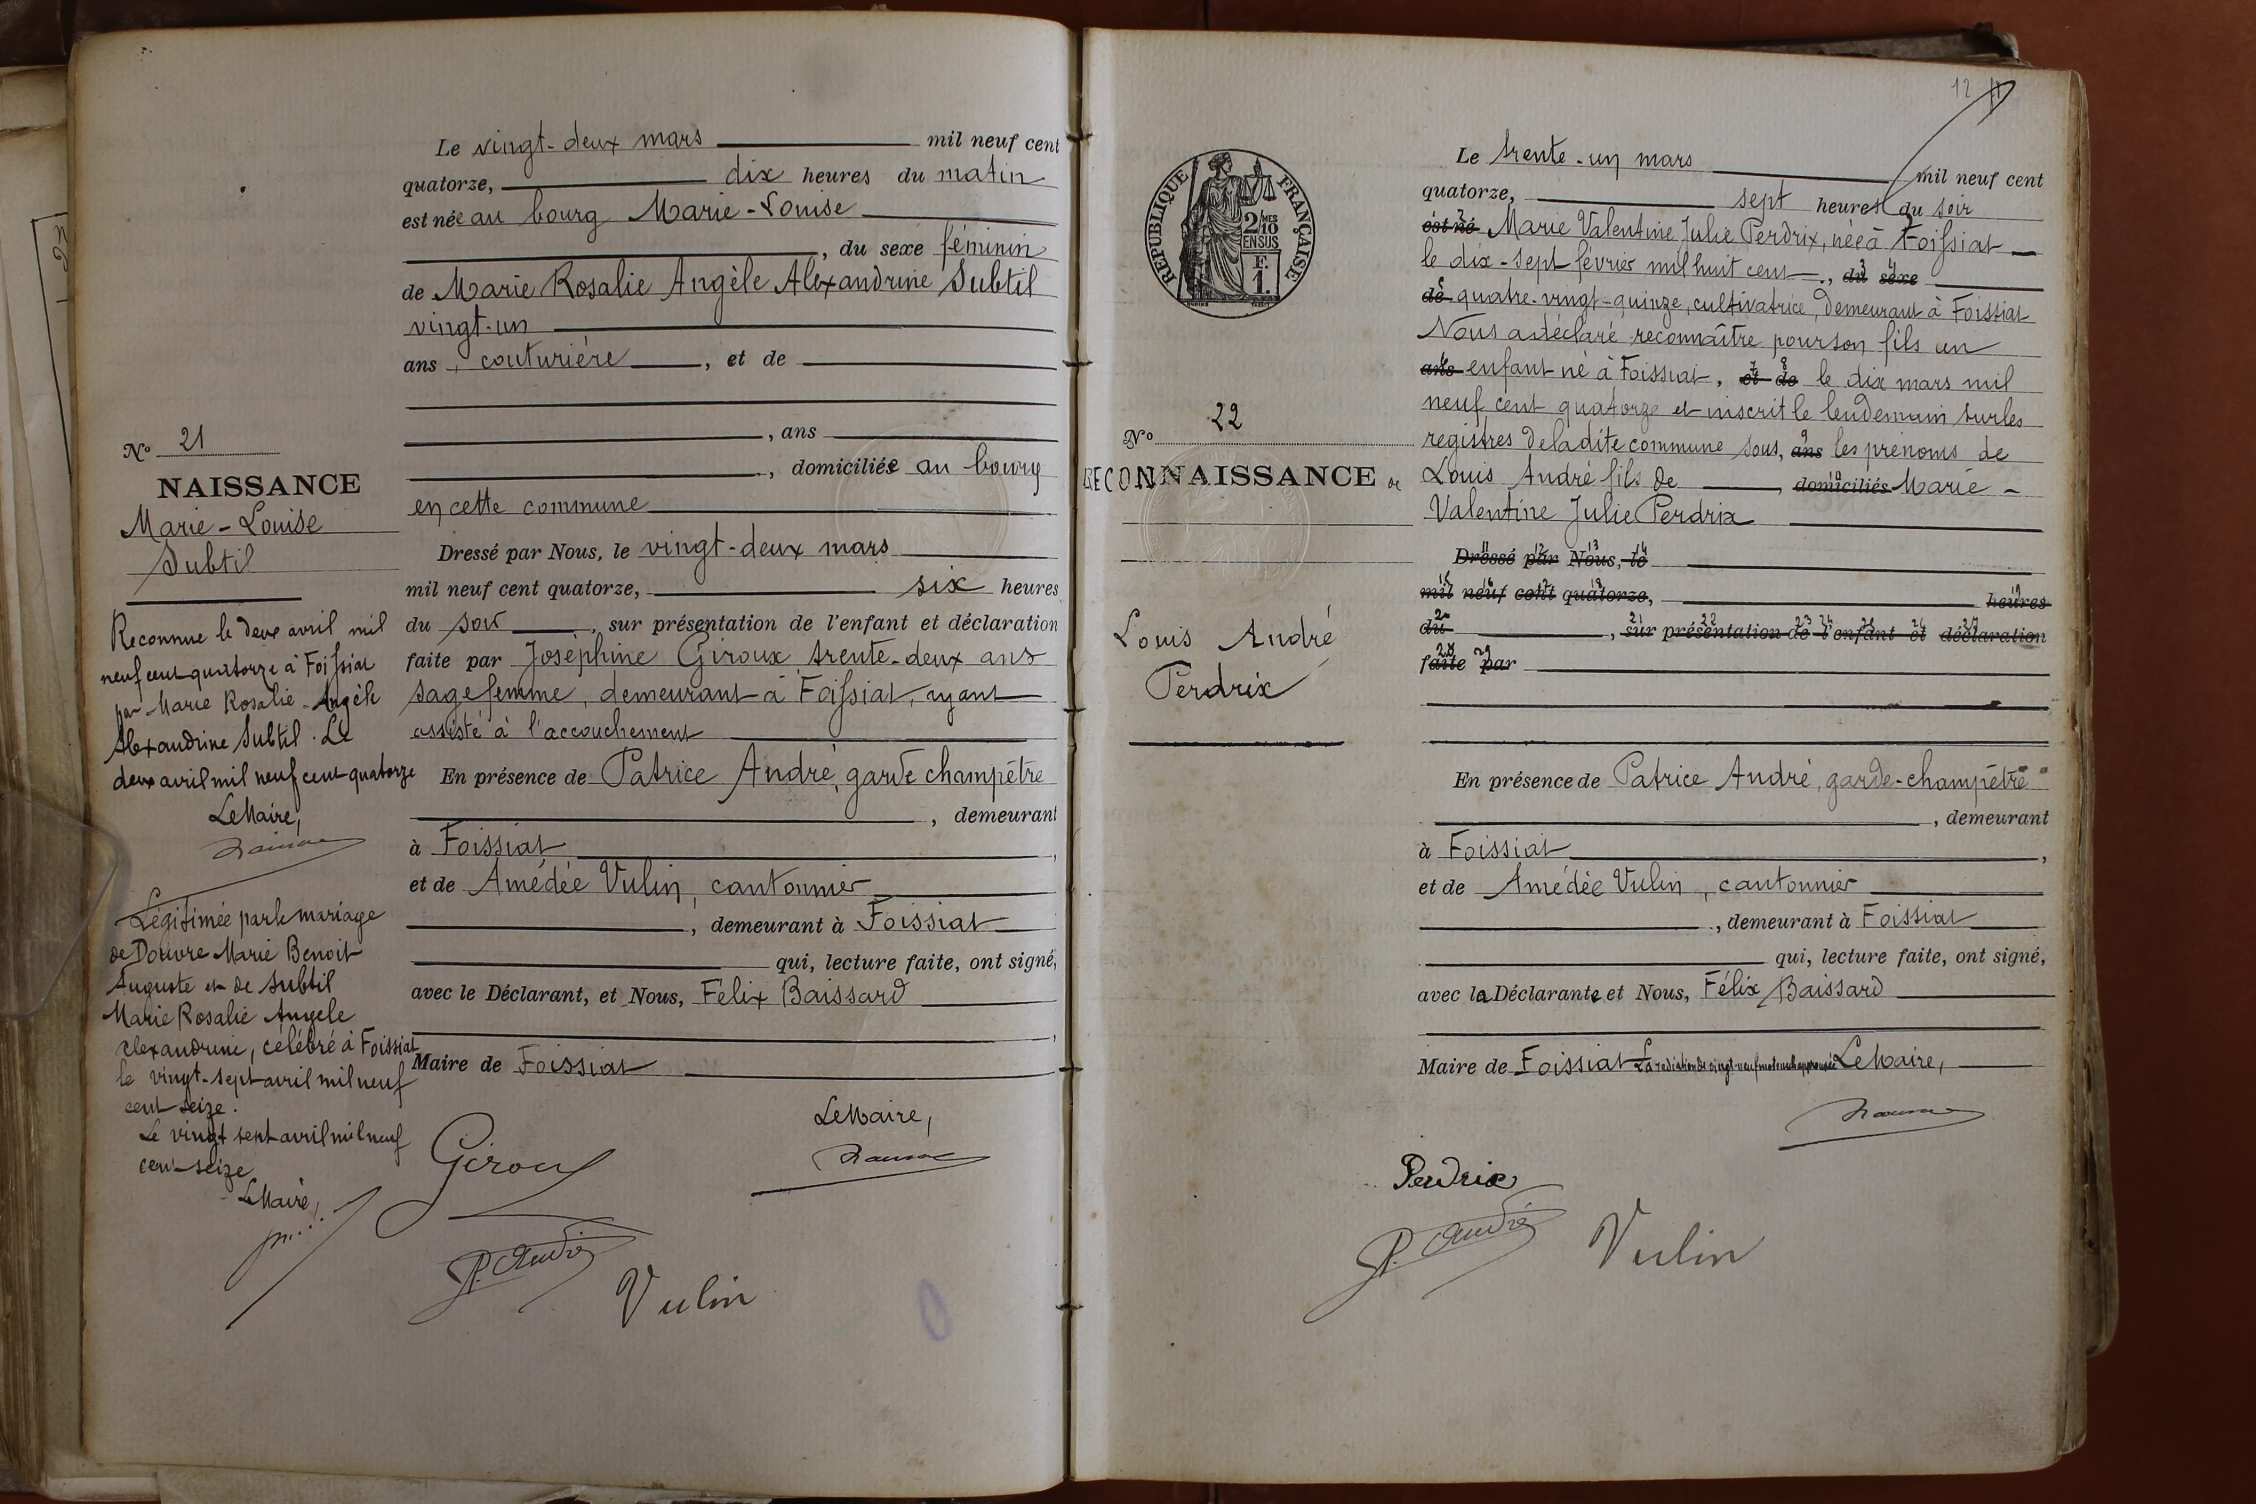 Le vingt-deux mars mil neuf cent
quatorze, dix heures du matin
est née au bourg Marie-Louise
, du sexe féminin
de Marie Rosalie Angèle Alexandrine Subtil
vingt-un
ans, couturière, et de
, ans
, domiciliée au bourg
en cette commune
No 21
NAISSANCE
Marie-Louise
Subtil
Dressé par Nous, le vingt-deux mars
mil neuf cent quatorze, six heures
du soir, sur présentation de l'enfant et déclaration
faite par Joséphine Giroux trente-deux ans
sage femme, demeurant à Foissiat, ayant
assisté à l'accouchement
En présence de Patrice André, garde champêtre
, demeurant
à Foissiat,
et de Amédée Vulin, cantonnier
, demeurant à Foissiat
qui, lecture faite, ont signé,
avec le Déclarant, et Nous, Félix Baissard
,
Maire de Foissiat
Le Maire,
Giroux
P. André
Vulin
Reconnue le deux avril mil
neuf cent quatorze à Foissiat
par Marie Rosalie Angèle
Alexandrine Subtil. Le
deux avril mil neuf cent quatorze
Le Maire,
Légitimée par le mariage
de Douvre Marie Benoit
Auguste et de Subtil
Marie Rosalie Angele
Alexandrine, célébré à Foissiat
le vingt-sept avril mil neuf
cent seize.
Le vingt sept avril mil neuf
cent seize
Le Maire,
12
RÉPUBLIQUE FRANÇAISE
2/10 MES
EN SUS
F.
1.
No 22
RECONNAISSANCE de
Louis André
Perdrix
Le trente-un mars mil neuf cent
quatorze, sept heures du soir
est né Marie Valentine Julie Perdrix, née à Foissiat
le dix-sept février mil huit cent, du sexe
de quatre-vingt-quinze, cultivatrice, demeurant à Foissiat
Nous a déclaré reconnaître pour son fils un
ans enfant né à Foissiat, et de le dix mars mil
neuf cent quatorze et inscrit le lendemain sur les
registres de la dite commune sous, ans les prénoms de
Louis André fils de, domiciliés Marie-
Valentine Julie Perdrix
Dressé par Nous, le
mil neuf cent quatorze, heures
du, sur présentation de l'enfant et déclaration
faite par
En présence de Patrice André, garde-champêtre
, demeurant
à Foissiat,
et de Amédée Vulin, cantonnier
, demeurant à Foissiat
qui, lecture faite, ont signé,
avec la Déclarante et Nous, Félix Baissard
Maire de Foissiat La radiation de vingt-neuf mots est approuvée Le Maire,
Perdrix
P. André
Vulin